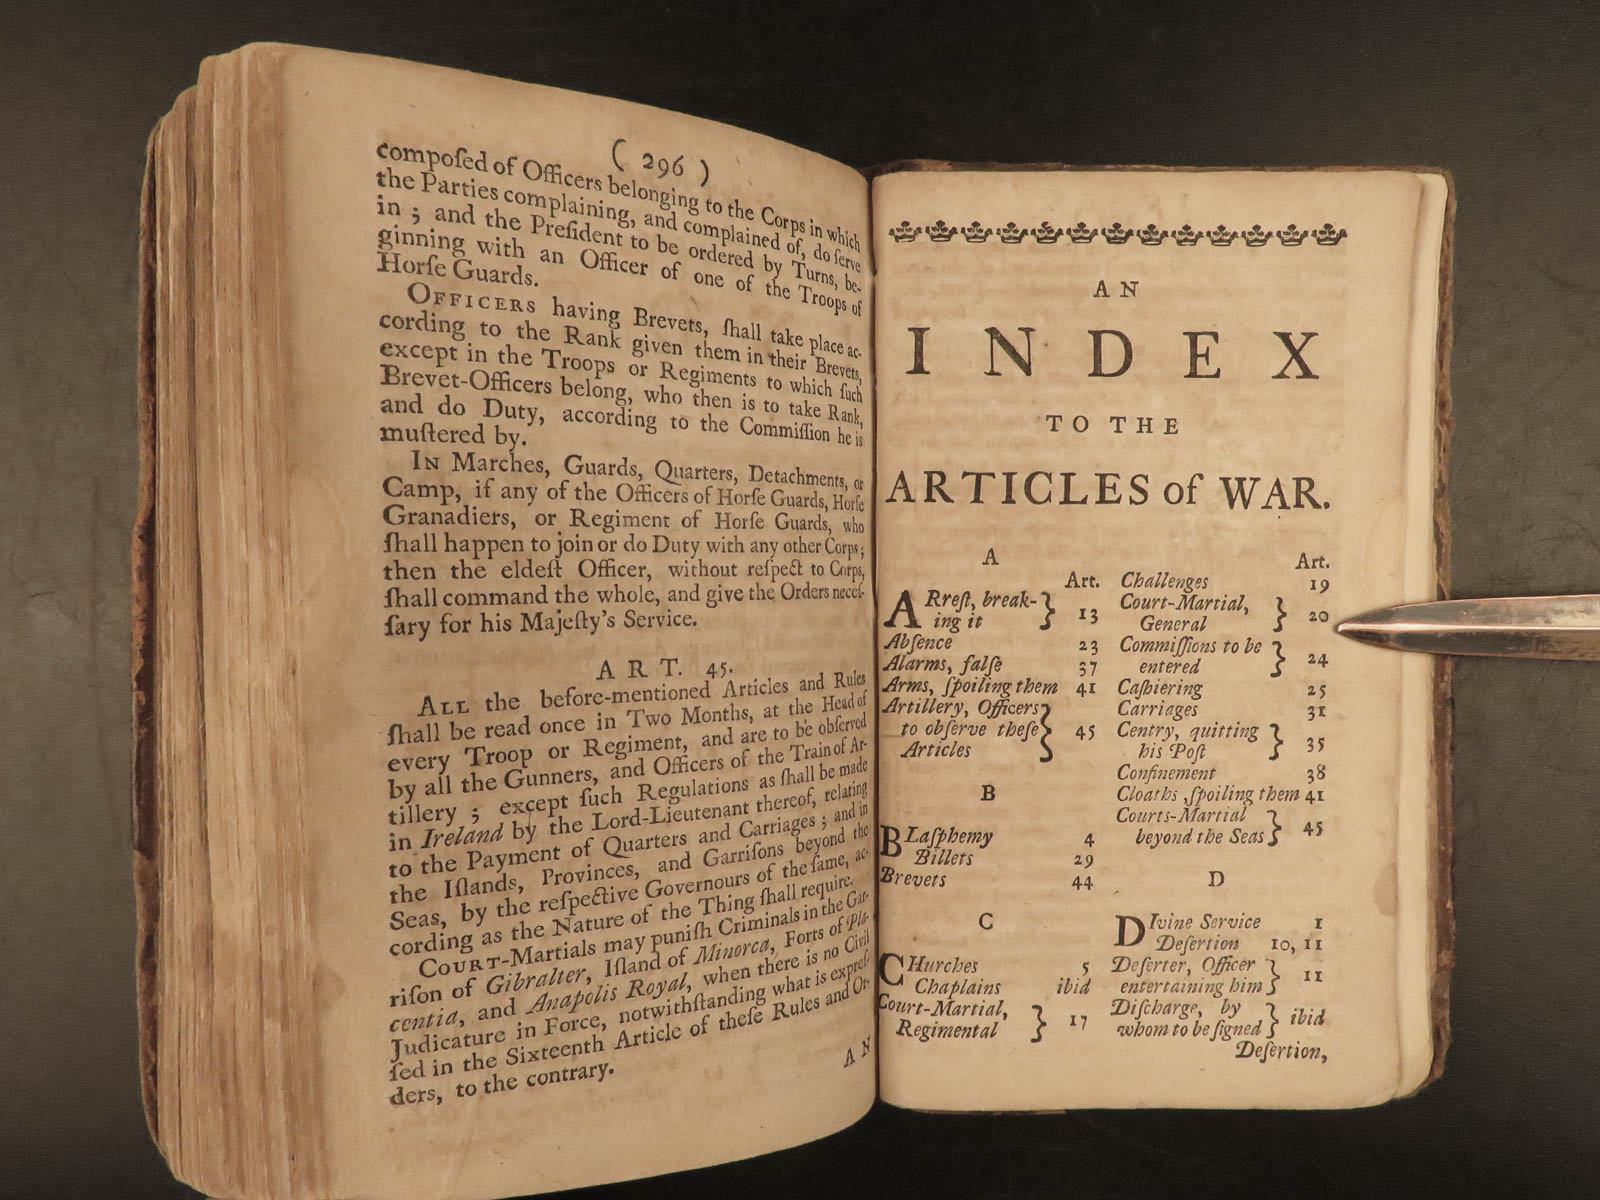 ( 296 )
compoſed of Officers belonging to the Corps in which
the Parties complaining, and complained of, do ſerve
in ; and the Preſident to be ordered by Turns, be-
ginning with an Officer of one of the Troops of
Horſe Guards.
OFFICERS having Brevets, ſhall take place ac-
cording to the Rank given them in their Brevets,
except in the Troops or Regiments to which ſuch
Brevet-Officers belong, who then is to take Rank,
and do Duty, according to the Commiſſion he is
muſtered by.
IN Marches, Guards, Quarters, Detachments, or
Camp, if any of the Officers of Horſe Guards, Horſe
Granadiers, or Regiment of Horſe Guards, who
ſhall happen to join or do Duty with any other Corps;
then the eldeſt Officer, without reſpect to Corps,
ſhall command the whole, and give the Orders neceſ-
ſary for his Majeſty's Service.
ART. 45.
ALL the before-mentioned Articles and Rules
ſhall be read once in Two Months, at the Head of
every Troop or Regiment, and are to be obſerved
by all the Gunners, and Officers of the Train of Ar-
tillery ; except ſuch Regulations as ſhall be made
in Ireland by the Lord-Lieutenant thereof, relating
to the Payment of Quarters and Carriages ; and in
the Iſlands, Provinces, and Garriſons beyond the
Seas, by the reſpective Governours of the ſame, ac-
cording as the Nature of the Thing ſhall require.
COURT-Martials may puniſh Criminals in the Gar-
riſon of Gibralter, Iſland of Minorca, Forts of Pla-
centia, and Anapolis Royal, when there is no Civil
Judicature in Force, notwithſtanding what is expreſ-
ſed in the Sixteenth Article of theſe Rules and Or-
ders, to the contrary.
AN
AN
INDEX
TO THE
ARTICLES of WAR.
A
Art.
ARreſt, break- }
ing it } 13
Abſence 23
Alarms, falſe 37
Arms, ſpoiling them 41
Artillery, Officers }
to obſerve theſe } 45
Articles }
B
BLaſphemy 4
Billets 29
Brevets 44
C
CHurches 5
Chaplains ibid
Court-Martial, }
Regimental } 17
Art.
Challenges 19
Court-Martial, }
General } 20
Commiſſions to be }
entered } 24
Caſhiering 25
Carriages 31
Centry, quitting }
his Poſt } 35
Confinement 38
Cloaths ,ſpoiling them 41
Courts-Martial }
beyond the Seas } 45
D
DIvine Service 1
Deſertion 10, 11
Deſerter, Officer }
entertaining him } 11
Diſcharge, by }
whom to be ſigned } ibid
Deſertion,